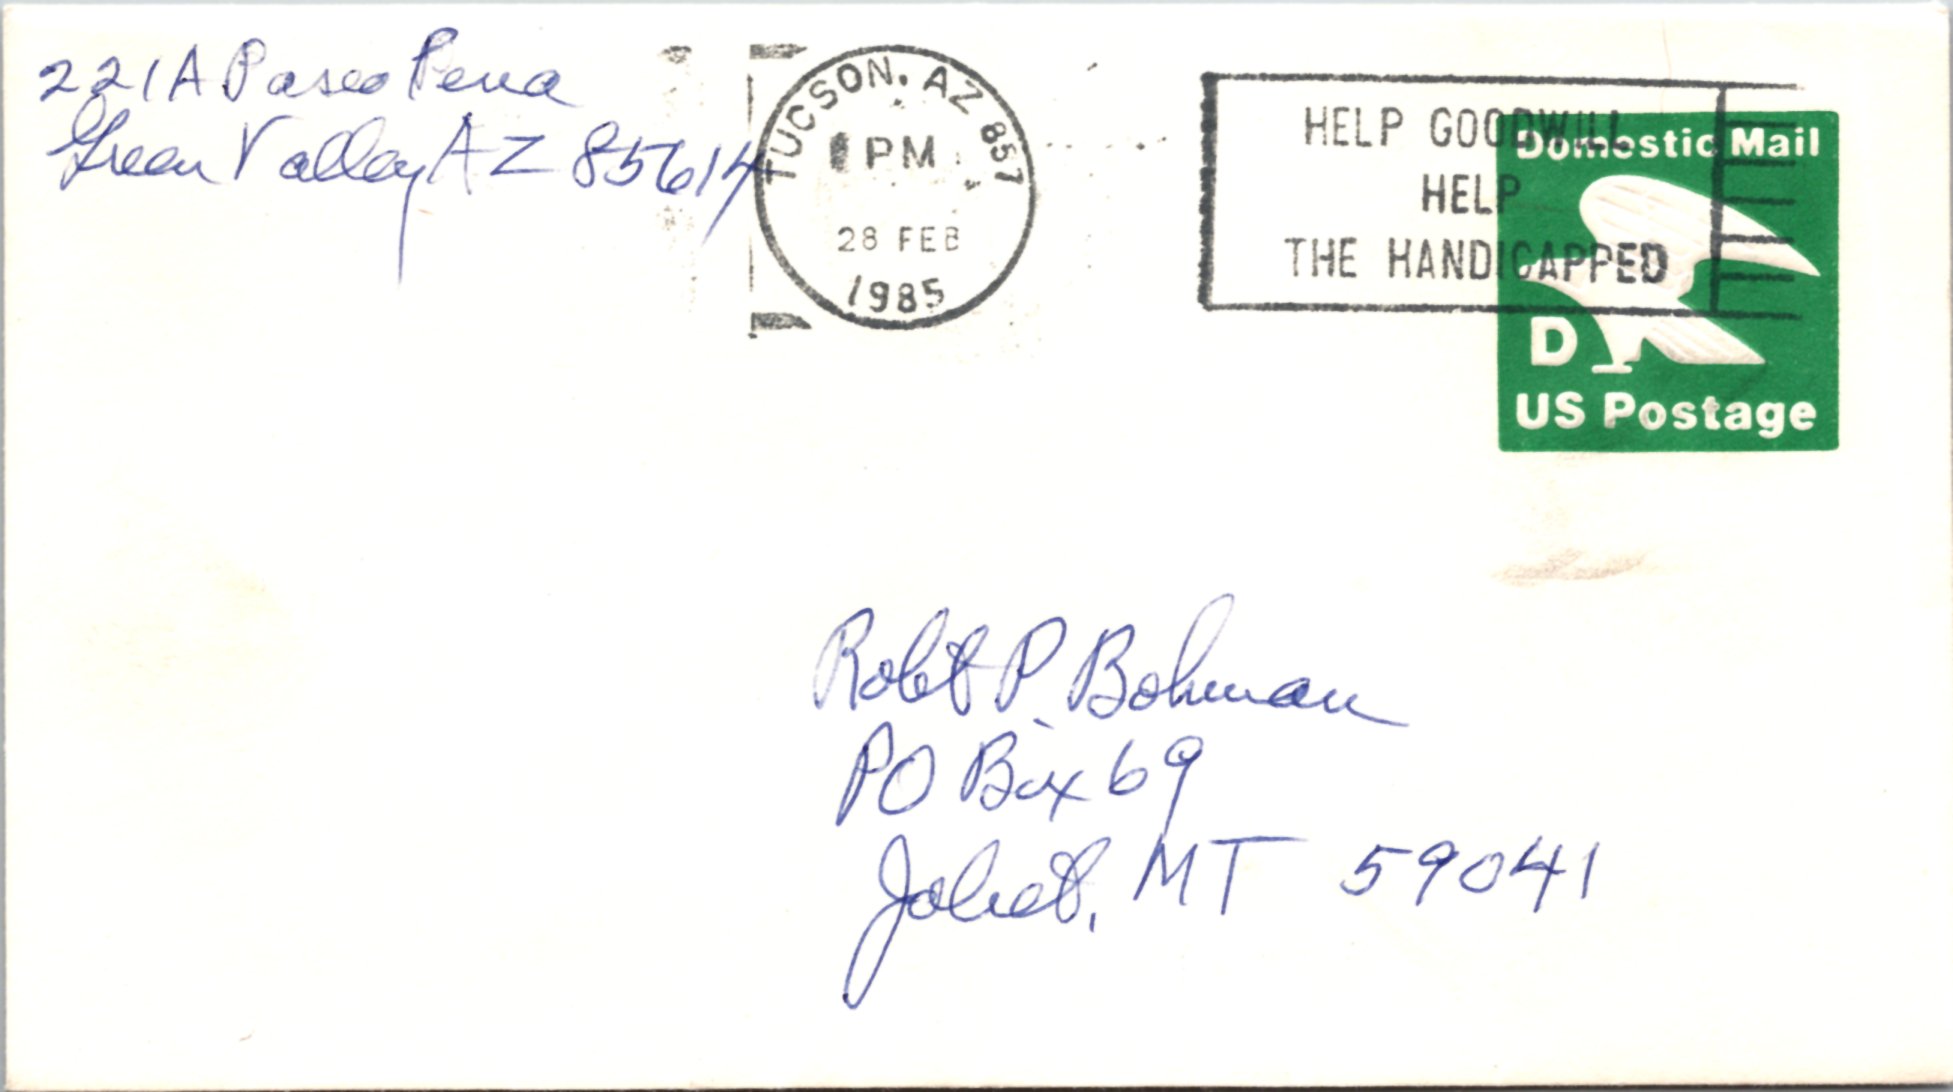 221A Paseo Pena
Green Valley AZ 85614
TUCSON, AZ 857
PM
28 FEB
1985
HELP GOODWILL
HELP
THE HANDICAPPED
Domestic Mail
D
US Postage
Robt P. Bohman
PO Box 69
Joliet, MT 59041